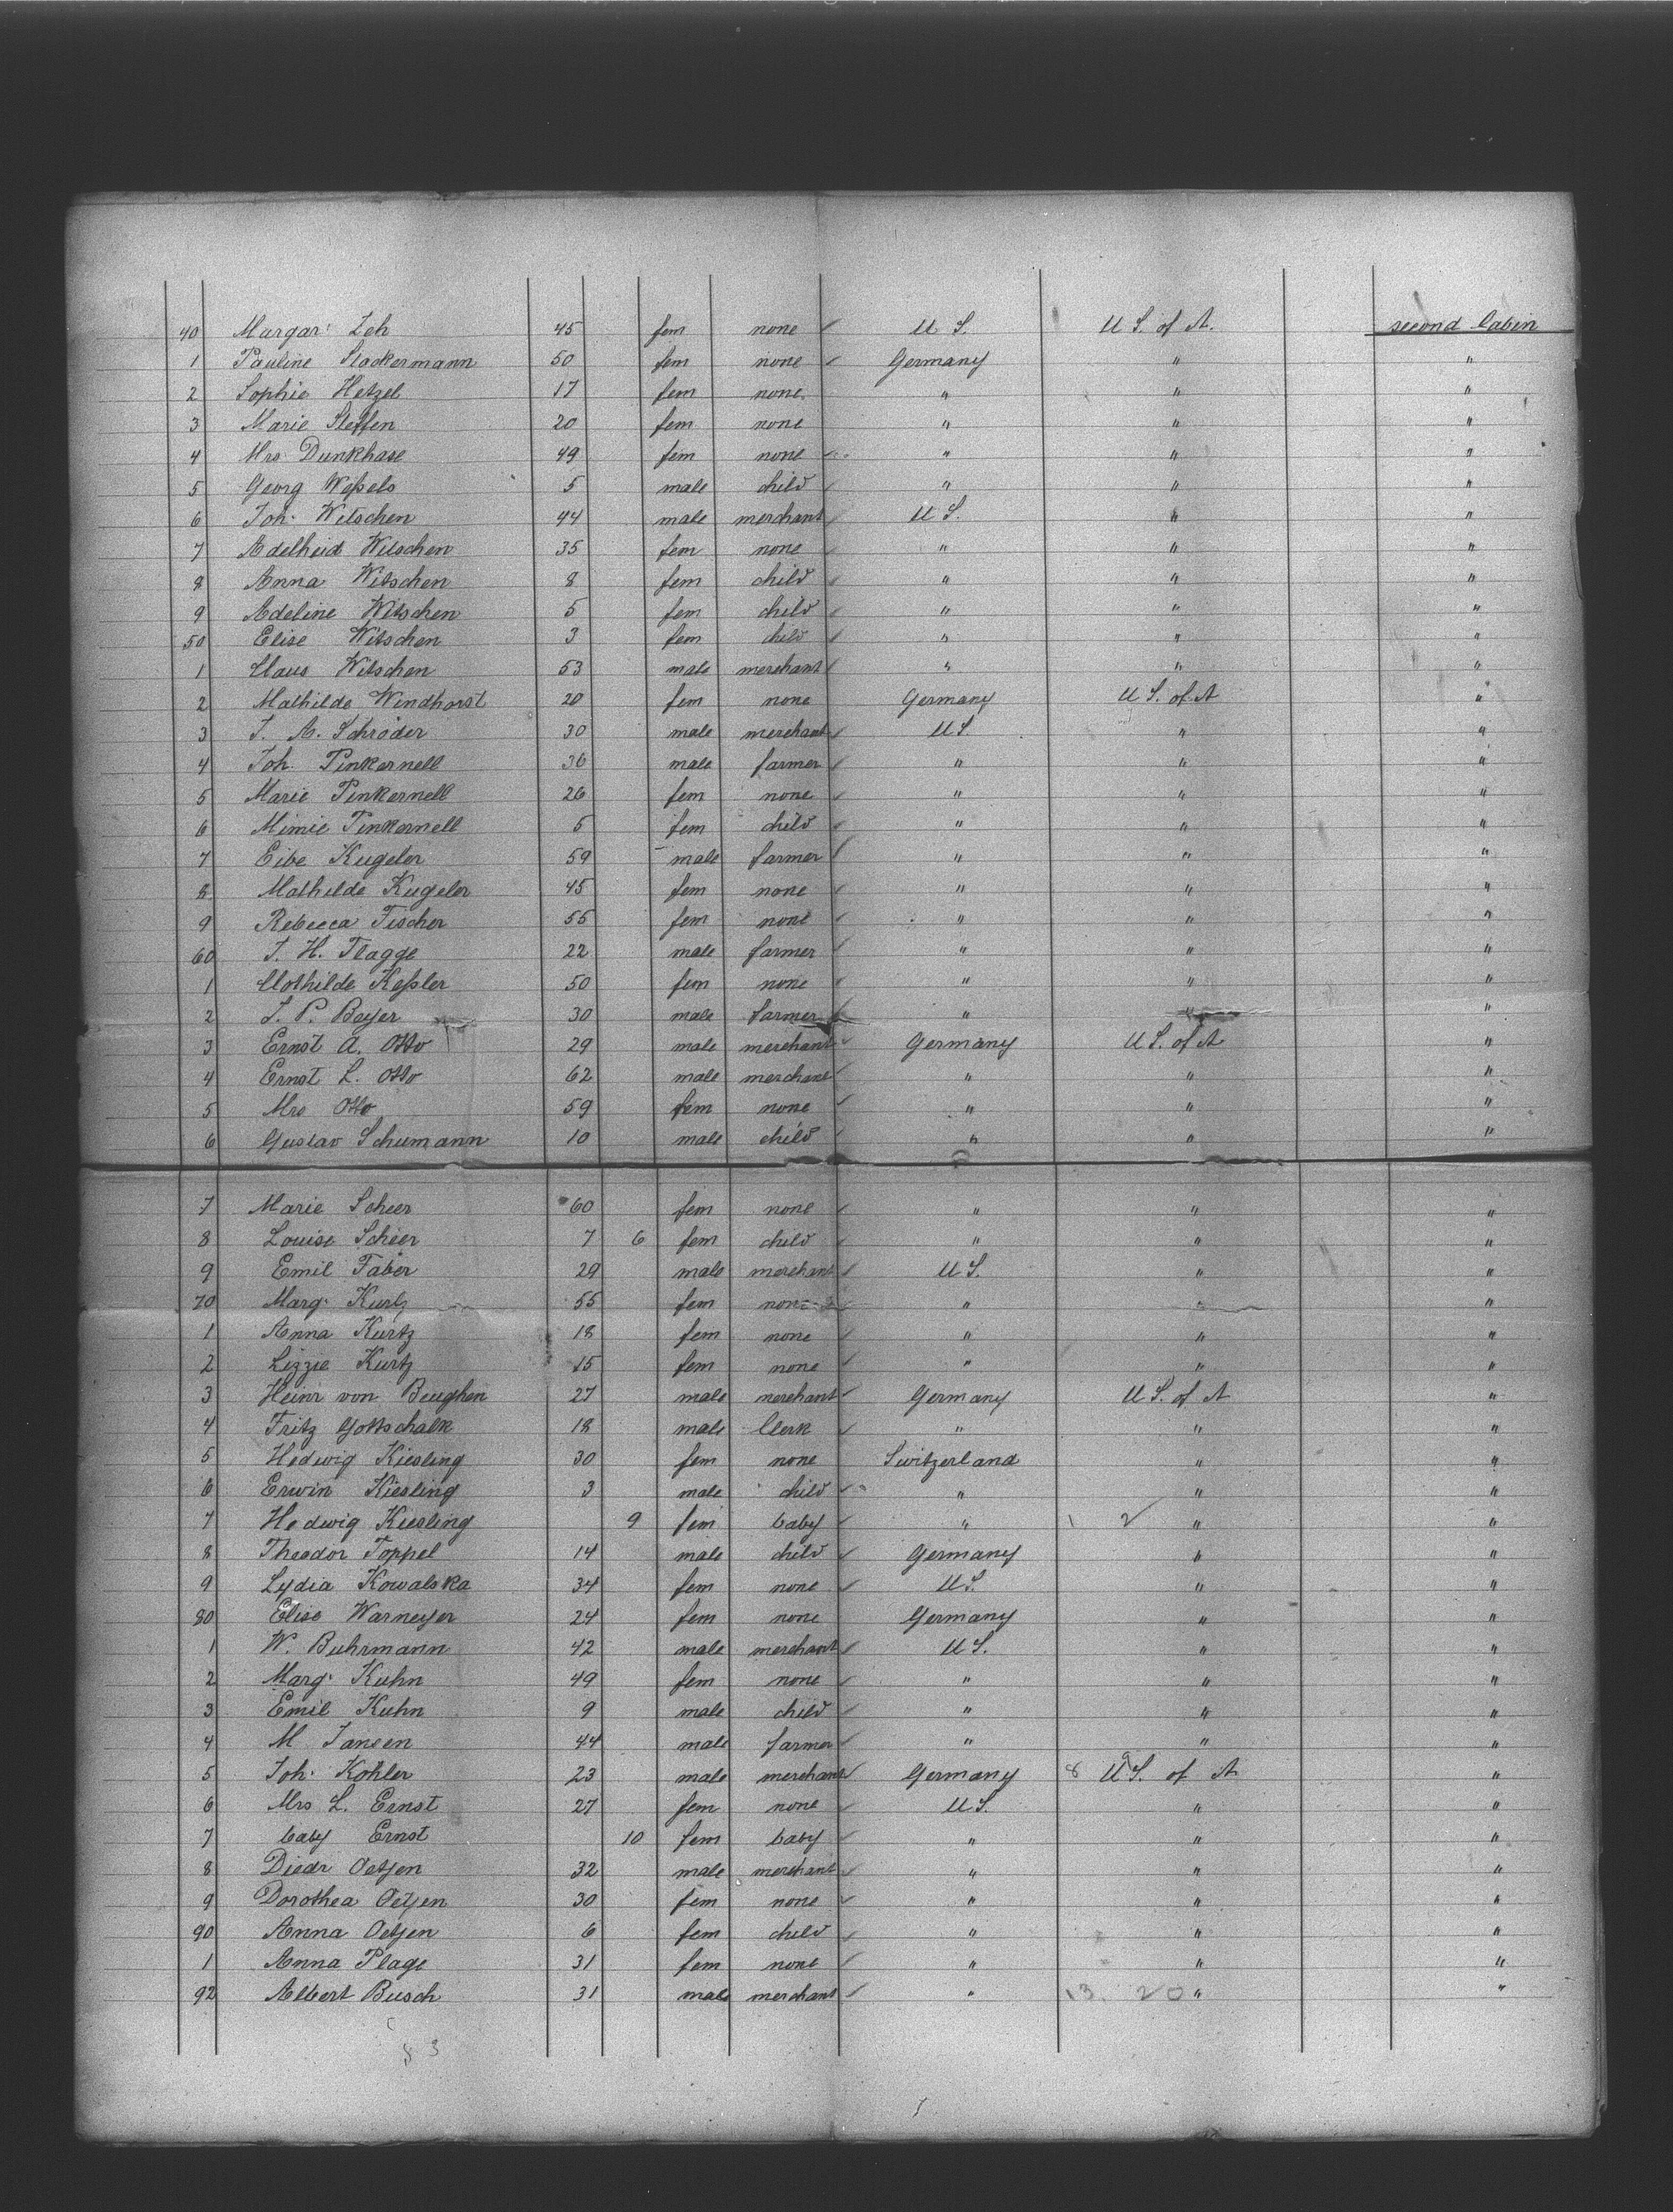 40 Margar: Zeh 45 fem none U S. U S. of A. second Cabin
1 Pauline Stackermann 50 fem none Germany " "
2 Sophie Hetzel 17 fem none " " "
3 Marie Steffen 20 fem none " " "
4 Mrs Dunkhase 49 fem none " " "
5 Georg Weßels 5 male child " " "
6 Joh: Witschen 44 male merchant U S. " "
7 Adelheid Witschen 35 fem none " " "
8 Anna Witschen 8 fem child " " "
9 Adeline Witschen 5 fem child " " "
50 Elise Witschen 3 fem child " " "
1 Claus Witschen 53 male merchant " " "
2 Mathilde Windhorst 20 fem none Germany U S. of A "
3 J. A. Schröder 30 male merchant U S. " "
4 Joh. Pinkernell 36 male farmer " " "
5 Marie Pinkernell 26 fem none " " "
6 Mimie Pinkernell 5 fem child " " "
7 Eibe Kugeler 59 male farmer " " "
8 Mathilde Kugeler 45 fem none " " "
9 Rebecca Fischer 55 fem none " " "
60 J. H. Flagge 22 male farmer " " "
1 Clothilde Keßler 50 fem none " " "
2 J. P. Beyer 30 male farmer " " "
3 Ernst A. Otto 29 male merchant Germany U S. of A "
4 Ernst L. Otto 62 male merchant " " "
5 Mrs Otto 59 fem none " " "
6 Gustav Schumann 10 male child " " "
7 Marie Scheer 60 fem none " " "
8 Louise Scheer 7 6 fem child " " "
9 Emil Faber 29 male merchant U S. " "
70 Marg: Kurtz 55 fem none " " "
1 Anna Kurtz 18 fem none " " "
2 Lizzie Kurtz 15 fem none " " "
3 Heinr von Beughen 27 male merchant Germany U S. of A "
4 Fritz Gottschalk 18 male Clerk " " "
5 Hedwig Kiesling 30 fem none Switzerland " "
6 Erwin Kiesling 3 male child " " "
7 Hedwig Kiesling 9 fem baby " 1 2 " "
8 Theodor Toppel 14 male child Germany " "
9 Lydia Kowalska 34 fem none U S. " "
80 Elise Warneyer 24 fem none Germany " "
1 W. Buhrmann 42 male merchant U S. " "
2 Marg: Kuhn 49 fem none " " "
3 Emil Kuhn 9 male child " " "
4 M Jansen 44 male farmer " " "
5 Joh: Köhler 23 male merchant Germany 8 9 U S. of A "
6 Mrs L. Ernst 27 fem none U S. " "
7 baby Ernst 10 fem baby " " "
8 Diedr Oetjen 32 male merchant " " "
9 Dorothea Oetjen 30 fem none " " "
90 Anna Oetjen 6 fem child " " "
1 Anna Plage 31 fem none " " "
92 Albert Busch 31 male merchant " 13. 20 " "